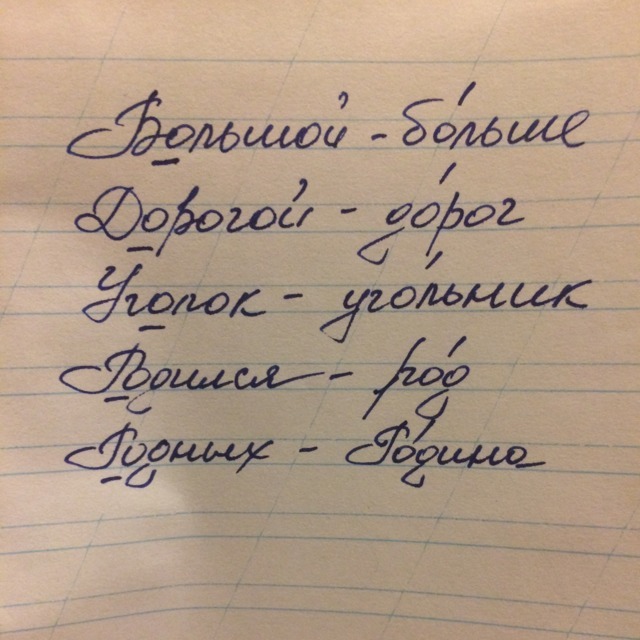 Большой - бо́льше
Дорогой - до́рог
Уголок - уго́льник
Родился - ро́д
Родных - Ро́дина